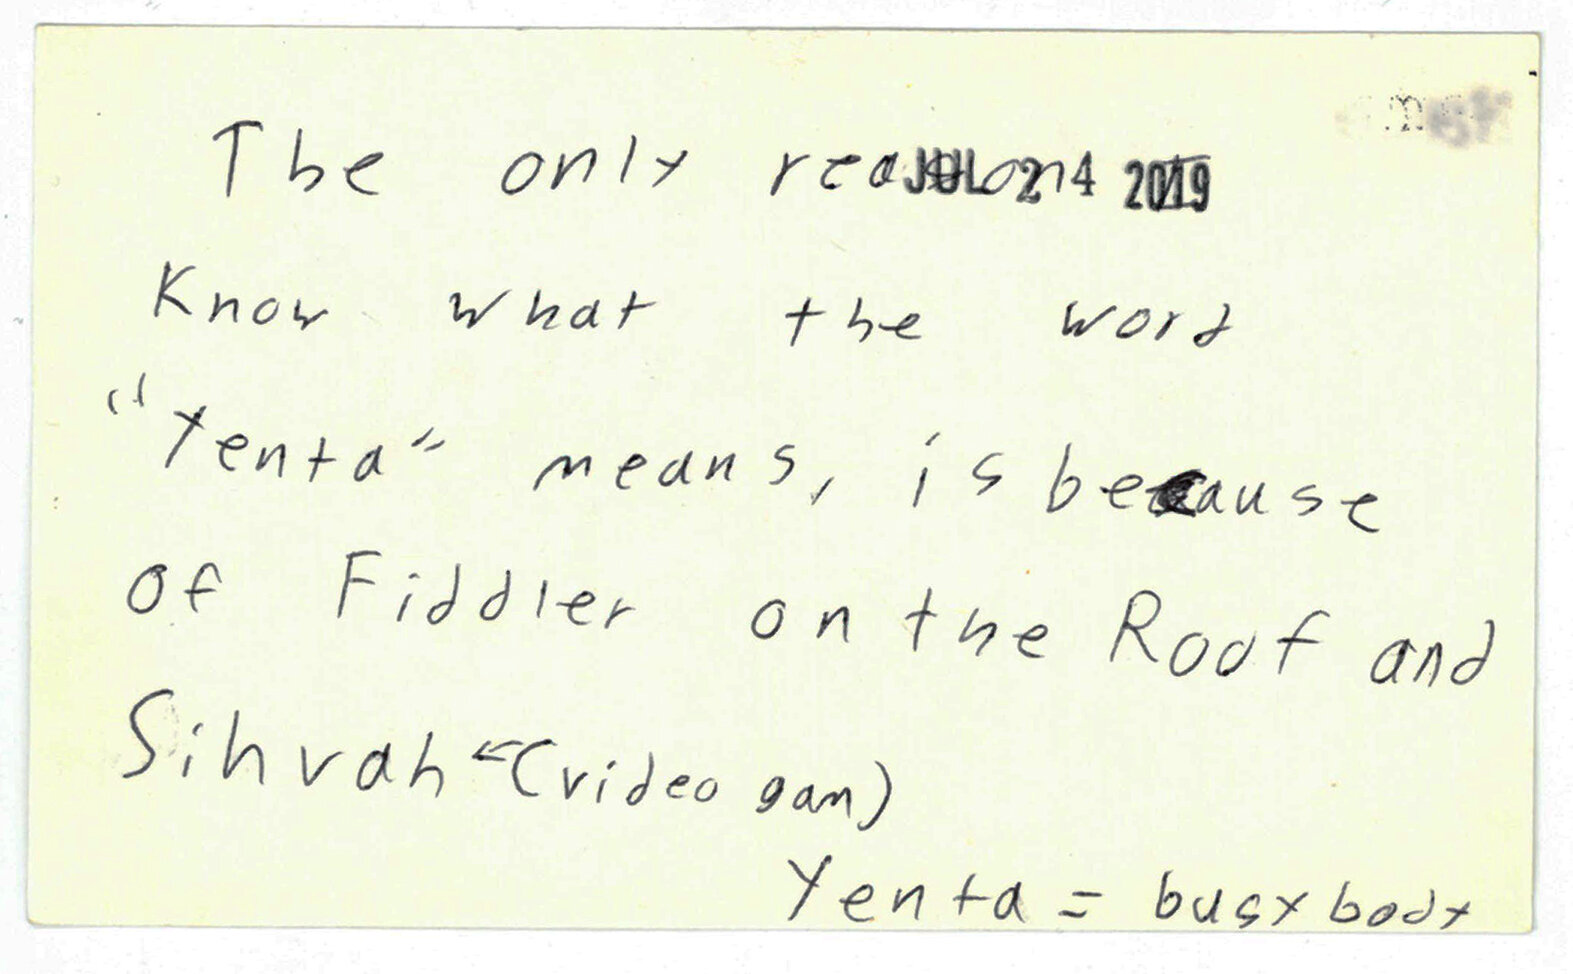 The only reason I
JUL 24 2019
Know what the word
"Yenta" means, is because
of Fiddler on the Roof and
Sihvah ←(video gam)
Yenta = busybody